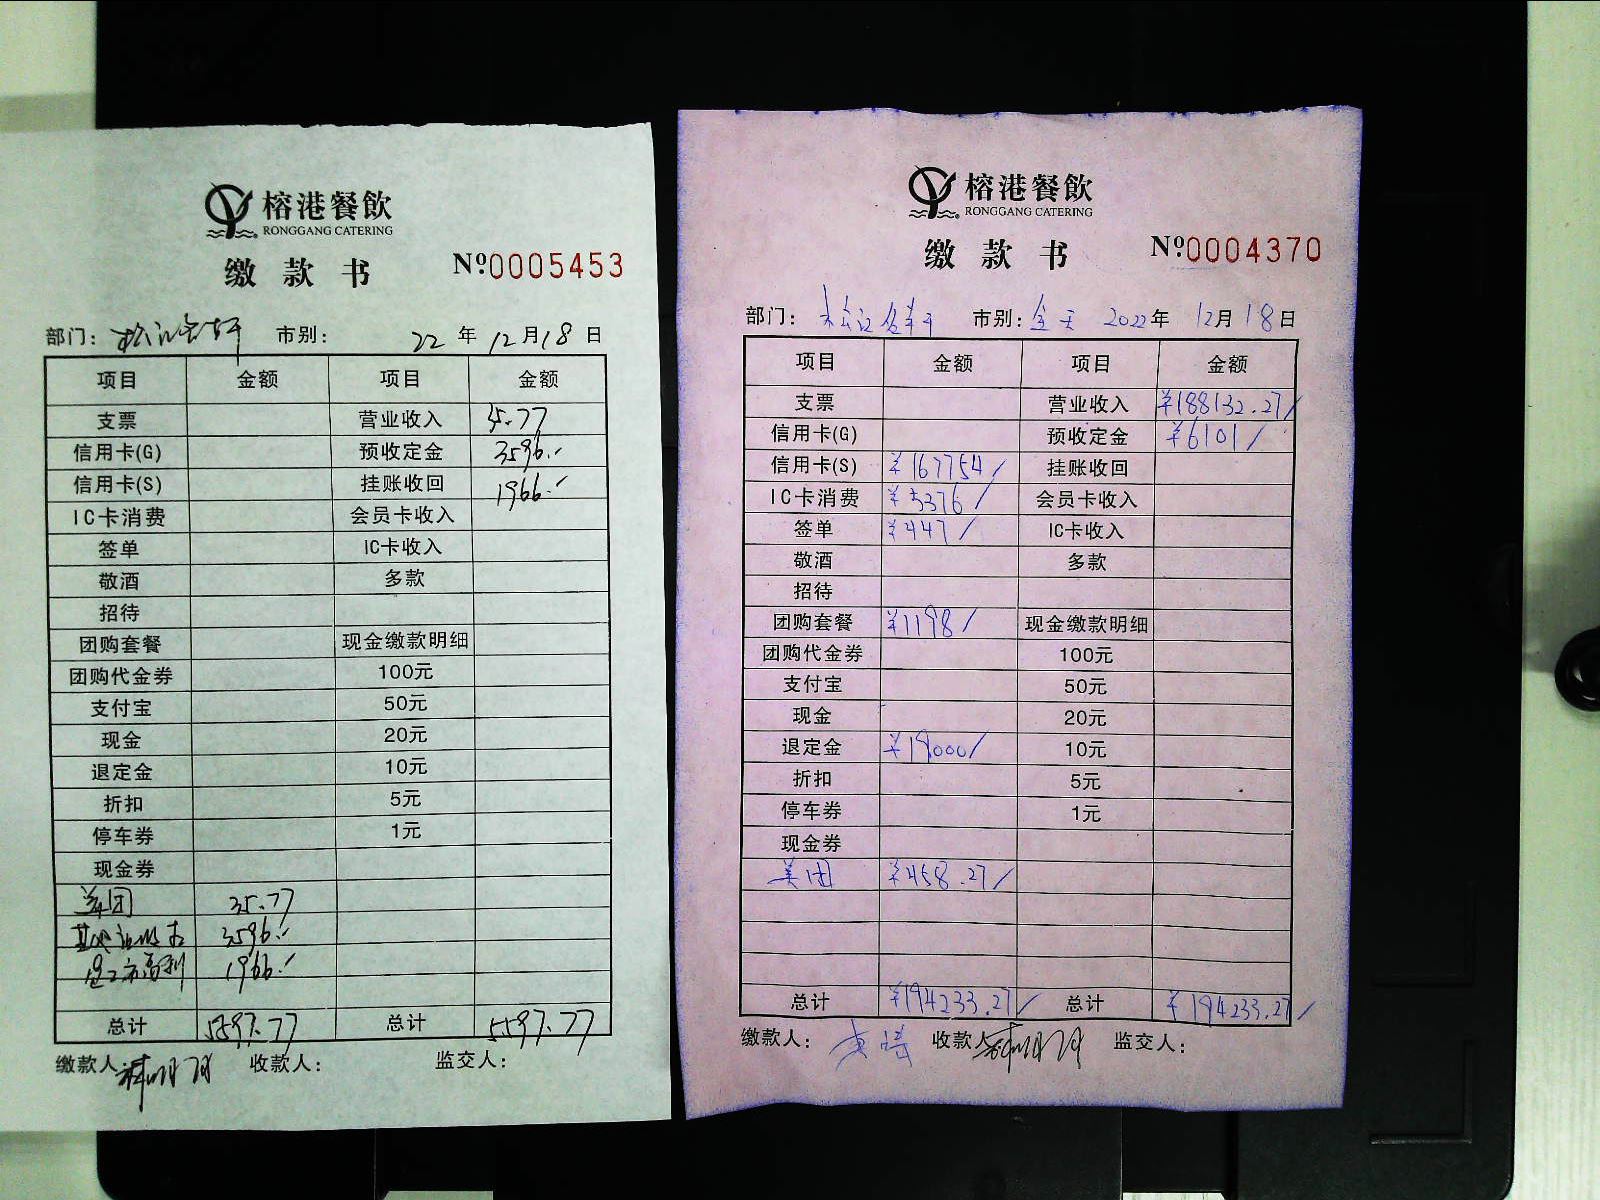 榕港餐飲
RONGGANG CATERING
缴款书 №0005453
部门： 市别： 22年12月18日
项目 金额 项目 金额
支票 营业收入 35.77
信用卡(G) 预收定金 3596.-
信用卡(S) 挂账收回 1966.-
IC卡消费 会员卡收入
签单 IC卡收入
敬酒 多款
招待
团购套餐 现金缴款明细
团购代金券 100元
支付宝 50元
现金 20元
退定金 10元
折扣 5元
停车券 1元
现金券
美团 35.77
3596.-
1966.-
总计 5597.77 总计 5597.77
缴款人 收款人： 监交人：
榕港餐飲
RONGGANG CATERING
缴款书 №0004370
部门： 市别：全天 2022年12月18日
项目 金额 项目 金额
支票 营业收入 ¥188132.27/
信用卡(G) 预收定金 ¥6101/
信用卡(S) ¥167754/ 挂账收回
IC卡消费 ¥5376/ 会员卡收入
签单 ¥447/ IC卡收入
敬酒 多款
招待
团购套餐 ¥1198/ 现金缴款明细
团购代金券 100元
支付宝 50元
现金 20元
退定金 ¥19000/ 10元
折扣 5元
停车券 1元
现金券
美团 ¥458.27/
总计 ¥194233.27/ 总计 ¥194233.27/
缴款人： 收款人 监交人：